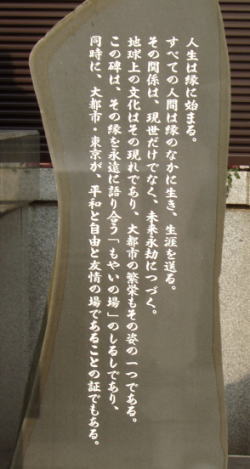 人生は縁に始まる。
すべての人間は縁のなかに生き、生涯を送る。
その関係は、現世だけでなく、未来永劫につづく。
地球上の文化はその現れであり、大都市の繁栄もその姿の一つである。
この碑は、その縁を永遠に語り合う「もやいの場」のしるしであり、
同時に、大都市・東京が、平和と自由と友情の場であることの証でもある。